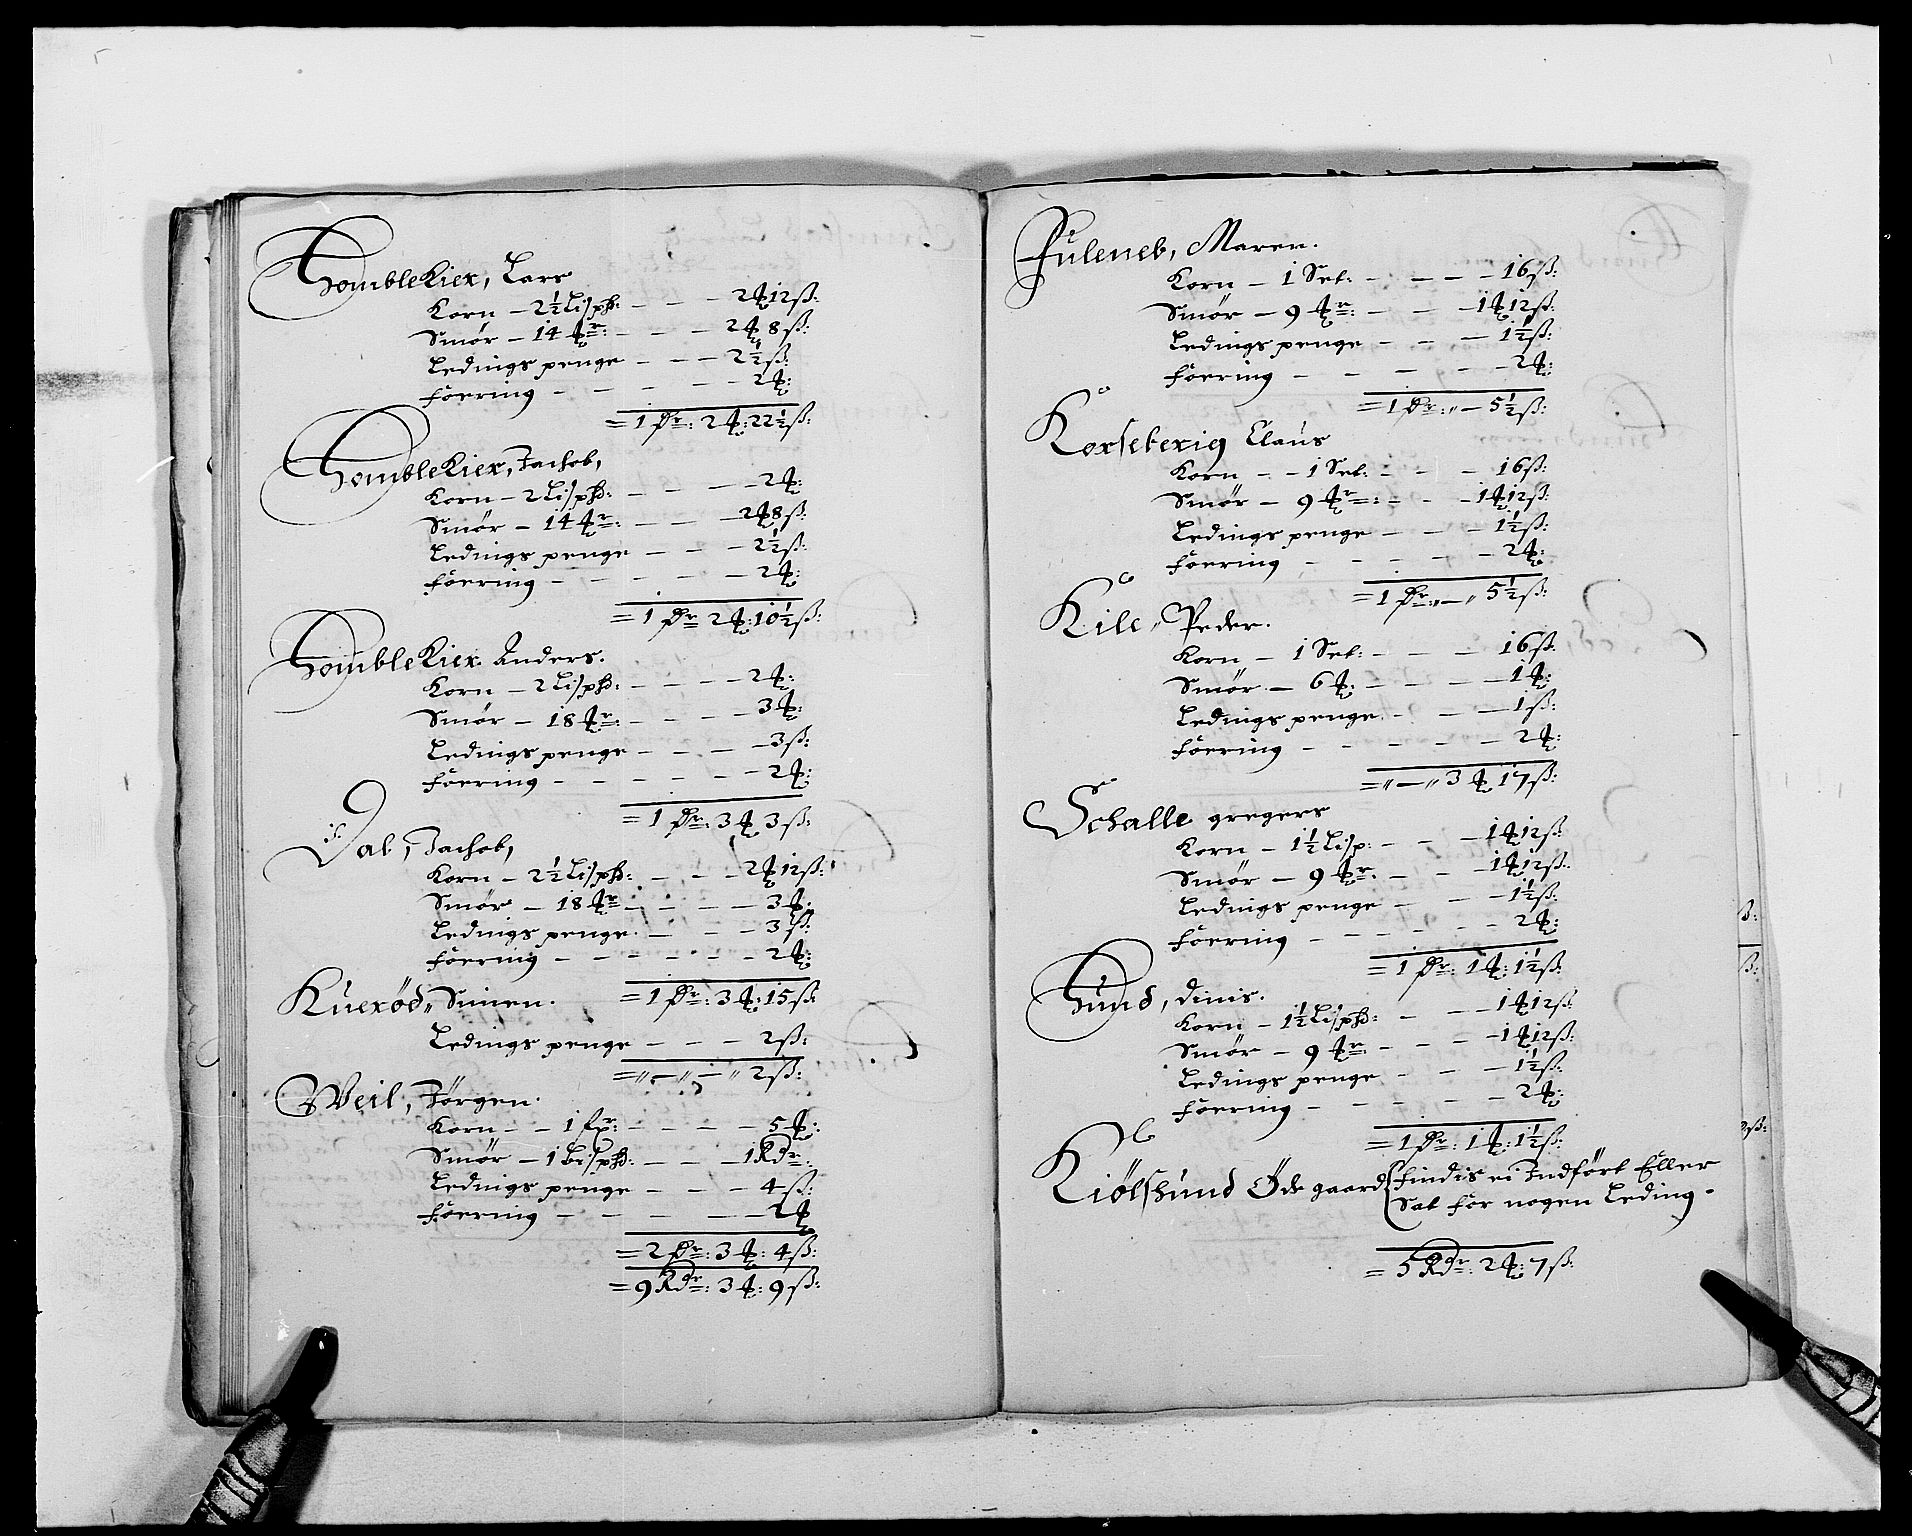 HombleKier, Lars
Korn – 2½ Lispd: – – – 2 ℔ 12 ß:
Smør – 14 ℔r: – – – 2 ℔ 8 ß:
Ledings penge – – – 2½ ß:
föering – – – – – 2 ℔:
= 1 Dr: 2 ℔: 22½ ß:
HombleKier, Jachob,
Korn – 2 Lispd: – – – – 2 ℔:
Smør – 14 ℔r: – – – 2 ℔ 8 ß:
Ledings penge – – – 2½ ß:
föering – – – – – 2 ℔:
= 1 Dr 2 ℔: 10½ ß:
HombleKier Anders.
Korn – 2 Lispd: – – – – 2 ℔:
Smør – 18 ℔r: – – – – 3 ℔:
Ledings penge – – – – 3 ß:
föering – – – – – – 2 ℔:
= 1 Dr: 3 ℔ 3 ß:
Dal, Jachob,
Korn – 2½ Lispd: – – – 2 ℔ 12 ß:
Smør – 18 ℔r – – – – 3 ℔:
Ledings penge – – – 3 ß:
föering – – – – – – 2 ℔:
= 1 Dr: 3 ℔: 15 ß:
Kuerød, Simen.
Ledings penge – – – 2 ß:
= " – " – " 2 ß:
Weil, Jörgen.
Korn – – 1 fr: – – – – 5 ℔:
Smør – 1 Bispd: – – – 1 Rdr:
Ledings penge – – – 4 ß:
föering – – – – – 2 ℔
= 2 Dr: 3 ℔: 4 ß:
= 9 Rdr: 3 ℔: 9 ß:
Juleneb, Marer.
Korn – 1 Set: – – – – 16 ß:
Smør – 9 ℔r: – – – 1 ℔ 12 ß:
Ledings penge – – – 1½ ß:
föering – – – – – 2 ℔:
= 1 Dr: " – 5½ ß:
Korseberig Claus
Korn – – 1 Set: – – – 16 ß:
Smør – 9 ℔r: – – – 1 ℔ 12 ß:
Ledings penge – – – 1½ ß:
föering – – – – – 2 ℔:
= 1 Dr: " – " 5½ ß:
Kile, Peder.
Korn – 1 Set: – – – 16 ß.
Smør – 6 ℔: – – – – 1 ℔:
Ledings penge – – – 1 ß:
föering – – – – – – 2 ℔:
= " – " 3 ℔ 17 ß:
Schalle gregers
Korn – 1½ Lisp: – – – 1 ℔ 12 ß:
Smør – 9 ℔r: – – – 1 ℔ 12 ß:
Ledings penge – – – 1½ ß:
föering – – – – – – 2 ℔:
= 1 Dr: 1 ℔: 1½ ß:
Hund, dinis.
Korn – 1½ Lispd: – – – 1 ℔ 12 ß:
Smør – 9 ℔r: – – – – 1 ℔ 12 ß:
Ledings penge – – – 1½ ß:
föering – – – – – – 2 ℔:
= 1 Dr: 1 ℔: 1½ ß:
Kiølshund Øde gaard findis ei Indfört Eller
Sat for nogen Leding.
= 5 Rdr: 2 ℔: 7 ß: